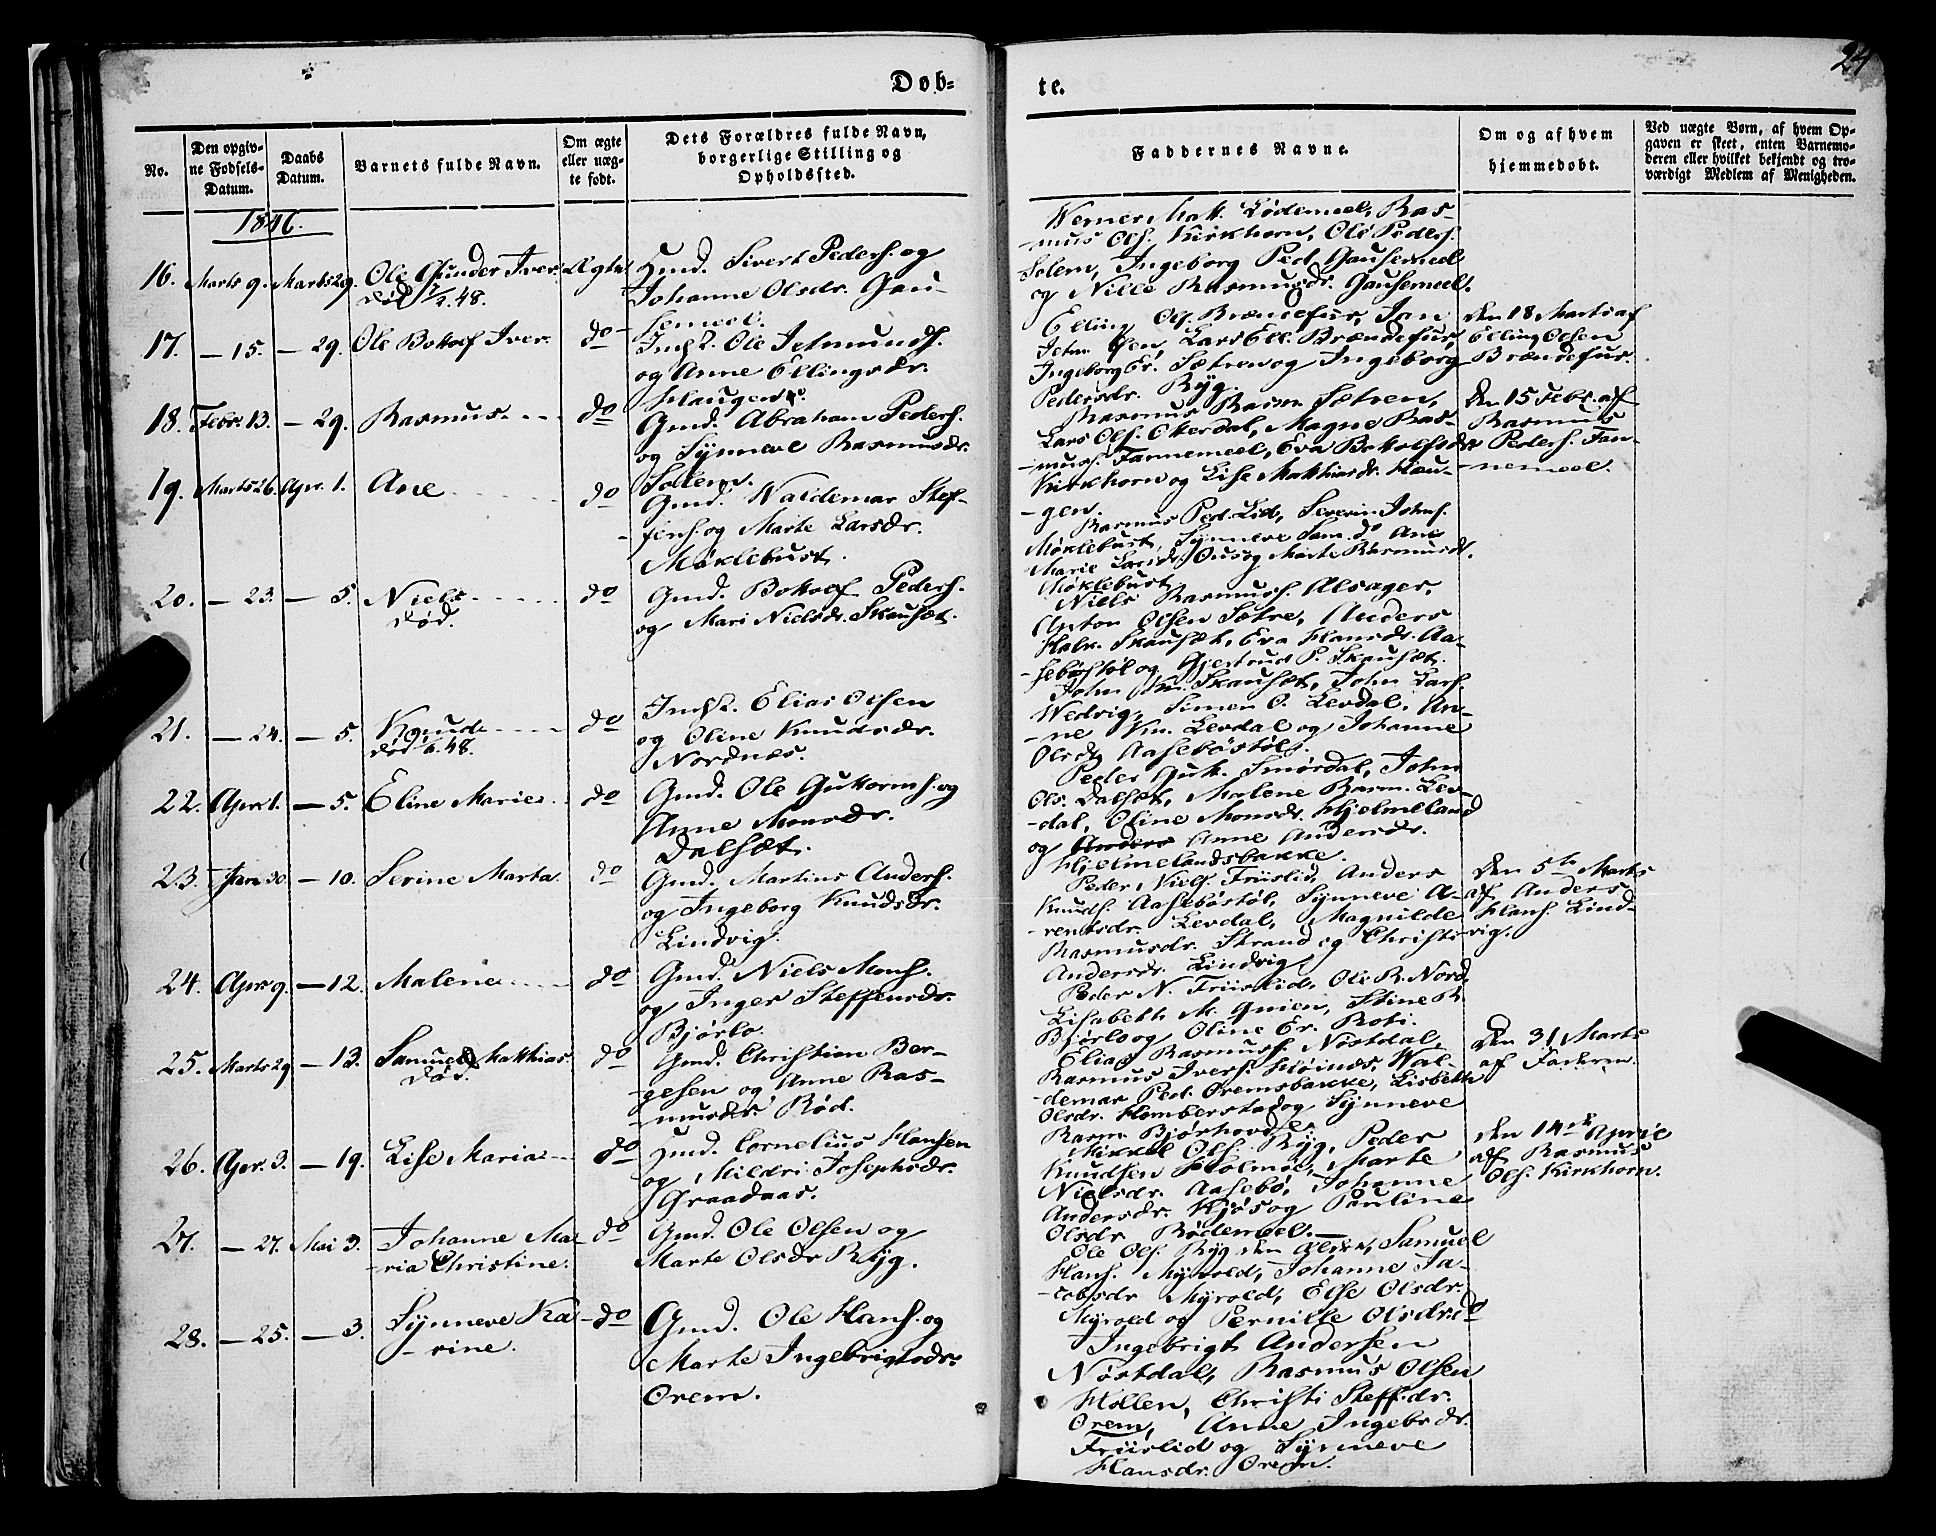 24
Døb-
te.
No.
Den opgiv-
ne Fødsels-
Datum.
Daabs
Datum.
Barnets fulde Navn.
Om ægte
eller uæg-
te født.
Dets Forældres fulde Navn,
borgerlige Stilling og
Opholdssted.
Faddernes Navne.
Om og af hvem
hjemmedøbt.
Ved uægte Børn, af hvem Op-
gaven er skeet, enten Barnemo-
deren eller hvilket bekjendt og tro-
værdigt Medlem af Menigheden.
1846.
16. Marts 9. Marts 29. Ole Gunder Iver. Ægte
død 48.
Hmd. Sivert Peders. og
Johanne Olsdr. Gau-
semeel.
Werner Matt. Lødemeel, Ras-
mus Ols. Kirkhorn, Ole Peders.
Solem, Ingeborg Ped. Gausemeel
og Nille Rasmusdr. Gausemeel.
17. — 15. — 29. Ole Bottolf Iver. do
Inds. Ole Jetmunds.
og Anne Ellingsdr.
Haugen.
Elling Ols. Brændefur, Jan
Jetm. Lars Ell. Brændefur,
Ingeborg Er. Sætren og Ingeborg
Pedersdr. Ryg.
den 18 Marts af
Elling Olsen
Brændefur.
18. Febr. 13. — 29. Rasmus do
Gmd. Abraham Peders.
og Synneve Rasmusdr.
Solem.
Rasmus Rasm. Sætren,
Lars Ols. Otterdal, Magne Ras-
muss. Fannemeel, Eva Bottolfsdr.
Kirkhorn og Lise Matthiasdr. Hau-
gen.
Den 15 Febr. af
Rasmus
Peders. Fan-
nemeel.
19. Marts 26. Apr. 1. Ane do
Gmd. Waldemar Stef-
fens. og Marte Larsdr.
Møklebust.
Rasmus Ped. Lid, Severin Johns.
Møklebust, Synneve Sam. do Ane
Marie Larsdr. og Marte Rasmusdr.
Møklebust
20. — 23. — 5. Niels do
død.
Gmd. Bottolf Peders.
og Mari Nielsdr. Skausæt.
Niels Rasmuss. Alsager,
Anton Olsen Sætre, Anders
Skausæt, Eva Hansdr. Aa-
sebøstøl og Gjertrud P. Skausæt.
21. — 24. — 5. Knud do
død 48.
Inds. Elias Olsen
og Oline Knudsdr.
Nordnes.
John Kn. Skausæt, John Lars.
Wedvig, Simen O. Levdal, An-
ne Kn. Levdal og Johanne
Olsdr. Aasebøstøl.
22. Apr. 1. — 5. Eline Marie do
Gmd. Ole Guttorms. og
Anne Monsdr.
Dalsæt.
Peder Gutt. Smørdal, John
Ols. Dalsæt, Malene Rasm. Lev-
dal, Oline Monsdr. Hjelmeland
og Anders Anne Andersdr.
Hjelmelandsbakke.
23. Jan. 30 — 10. Serine Marta do
Gmd. Martinus Anders.
og Ingeborg Knudsdr.
Lindvig.
Peder Niels. Friislid, Anders
Knuds. Aasebøstøl, Synneve A-
rentsdr. Levdal, Magnilde
Rasmusdr. Strand og Christi
Andersdr. Lindvig
Den 5te Marts
af Anders
Hans. Lind-
vig.
24. Apr. 9. — 12. Malene do
Gmd. Niels Mons.
og Inger Steffensdr.
Bjørlo.
Peder N. Friislid, Ole R. Nord,
Lisabeth M. Qvien, Stine R.
Bjørlo og Oline Er. Roti.
25. Marts 29 — 13. Samuel Matthias do
død.
Gmd. Christian Ber-
gesen og Anne Ras-
musdr Rød.
Elias Rasmuss. Nøstdal,
Rasmus Ivers. Høines, Wal-
demar Ped. Oremsbakke, Lisbeth
Olsdr. Homberstad og Synneve
Rasm. Bjørhovde.
Den 31 Marts
af Faderen.
26. Apr. 3. — 19. Lise Maria do
Hmd. Cornelius Hansen
og Mildri Josephsdr.
Graadaas.
Mikkel Ols. Ryg, Peder
Knudsen Holmøe, Marte
Nielsdr. Aasebø, Johanne
Andersdr. Kjøs og Pauline
Olsdr Rødemeel.
den 14de April
af Rasmus
Ols. Kirkhorn.
27. — 27. Mai 3. Johanne Ma-
ria Christine. do
Gmd. Ole Olsen og
Marte Olsdr Ryg.
Ole Ols. Ryg den Ældre, Samuel
Hans. Myrold, Johanne Ja-
cobsdr Myrold, Else Olsdr.
Myrold og Pernille Olsdr. do
28. — 25. — 3. Synneve Ka-
rine. do
Gmd. Ole Hans. og
Marte Ingebrigtsdr.
Orem.
Ingebrigt Andersen
Nøstdal, Rasmus Olsen
Hollen, Christi Steff.dr.
Orem, Anne Ingebr.dr.
Friislid og Synneve
Hansdr. Orem.